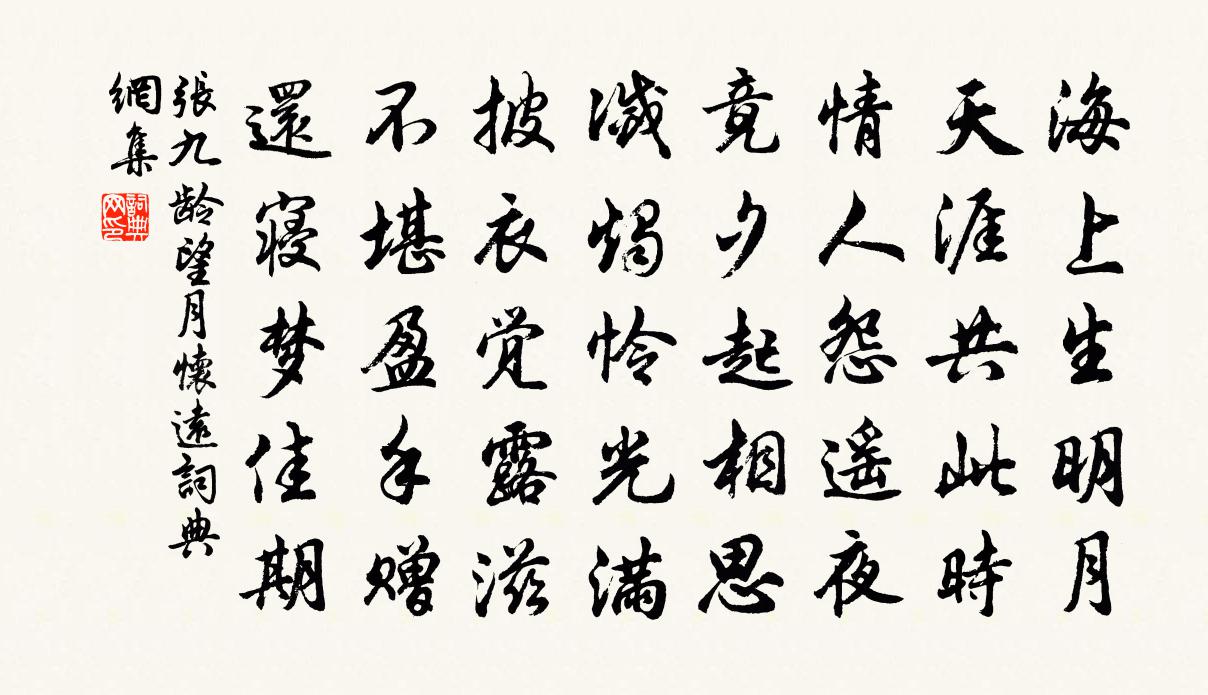 海上生明月
天涯共此時
情人怨遥夜
竟夕起相思
滅燭怜光滿
披衣覺露滋
不堪盈手贈
還寝梦佳期
張九齡望月懷遠詞典
網集
詞典
网印